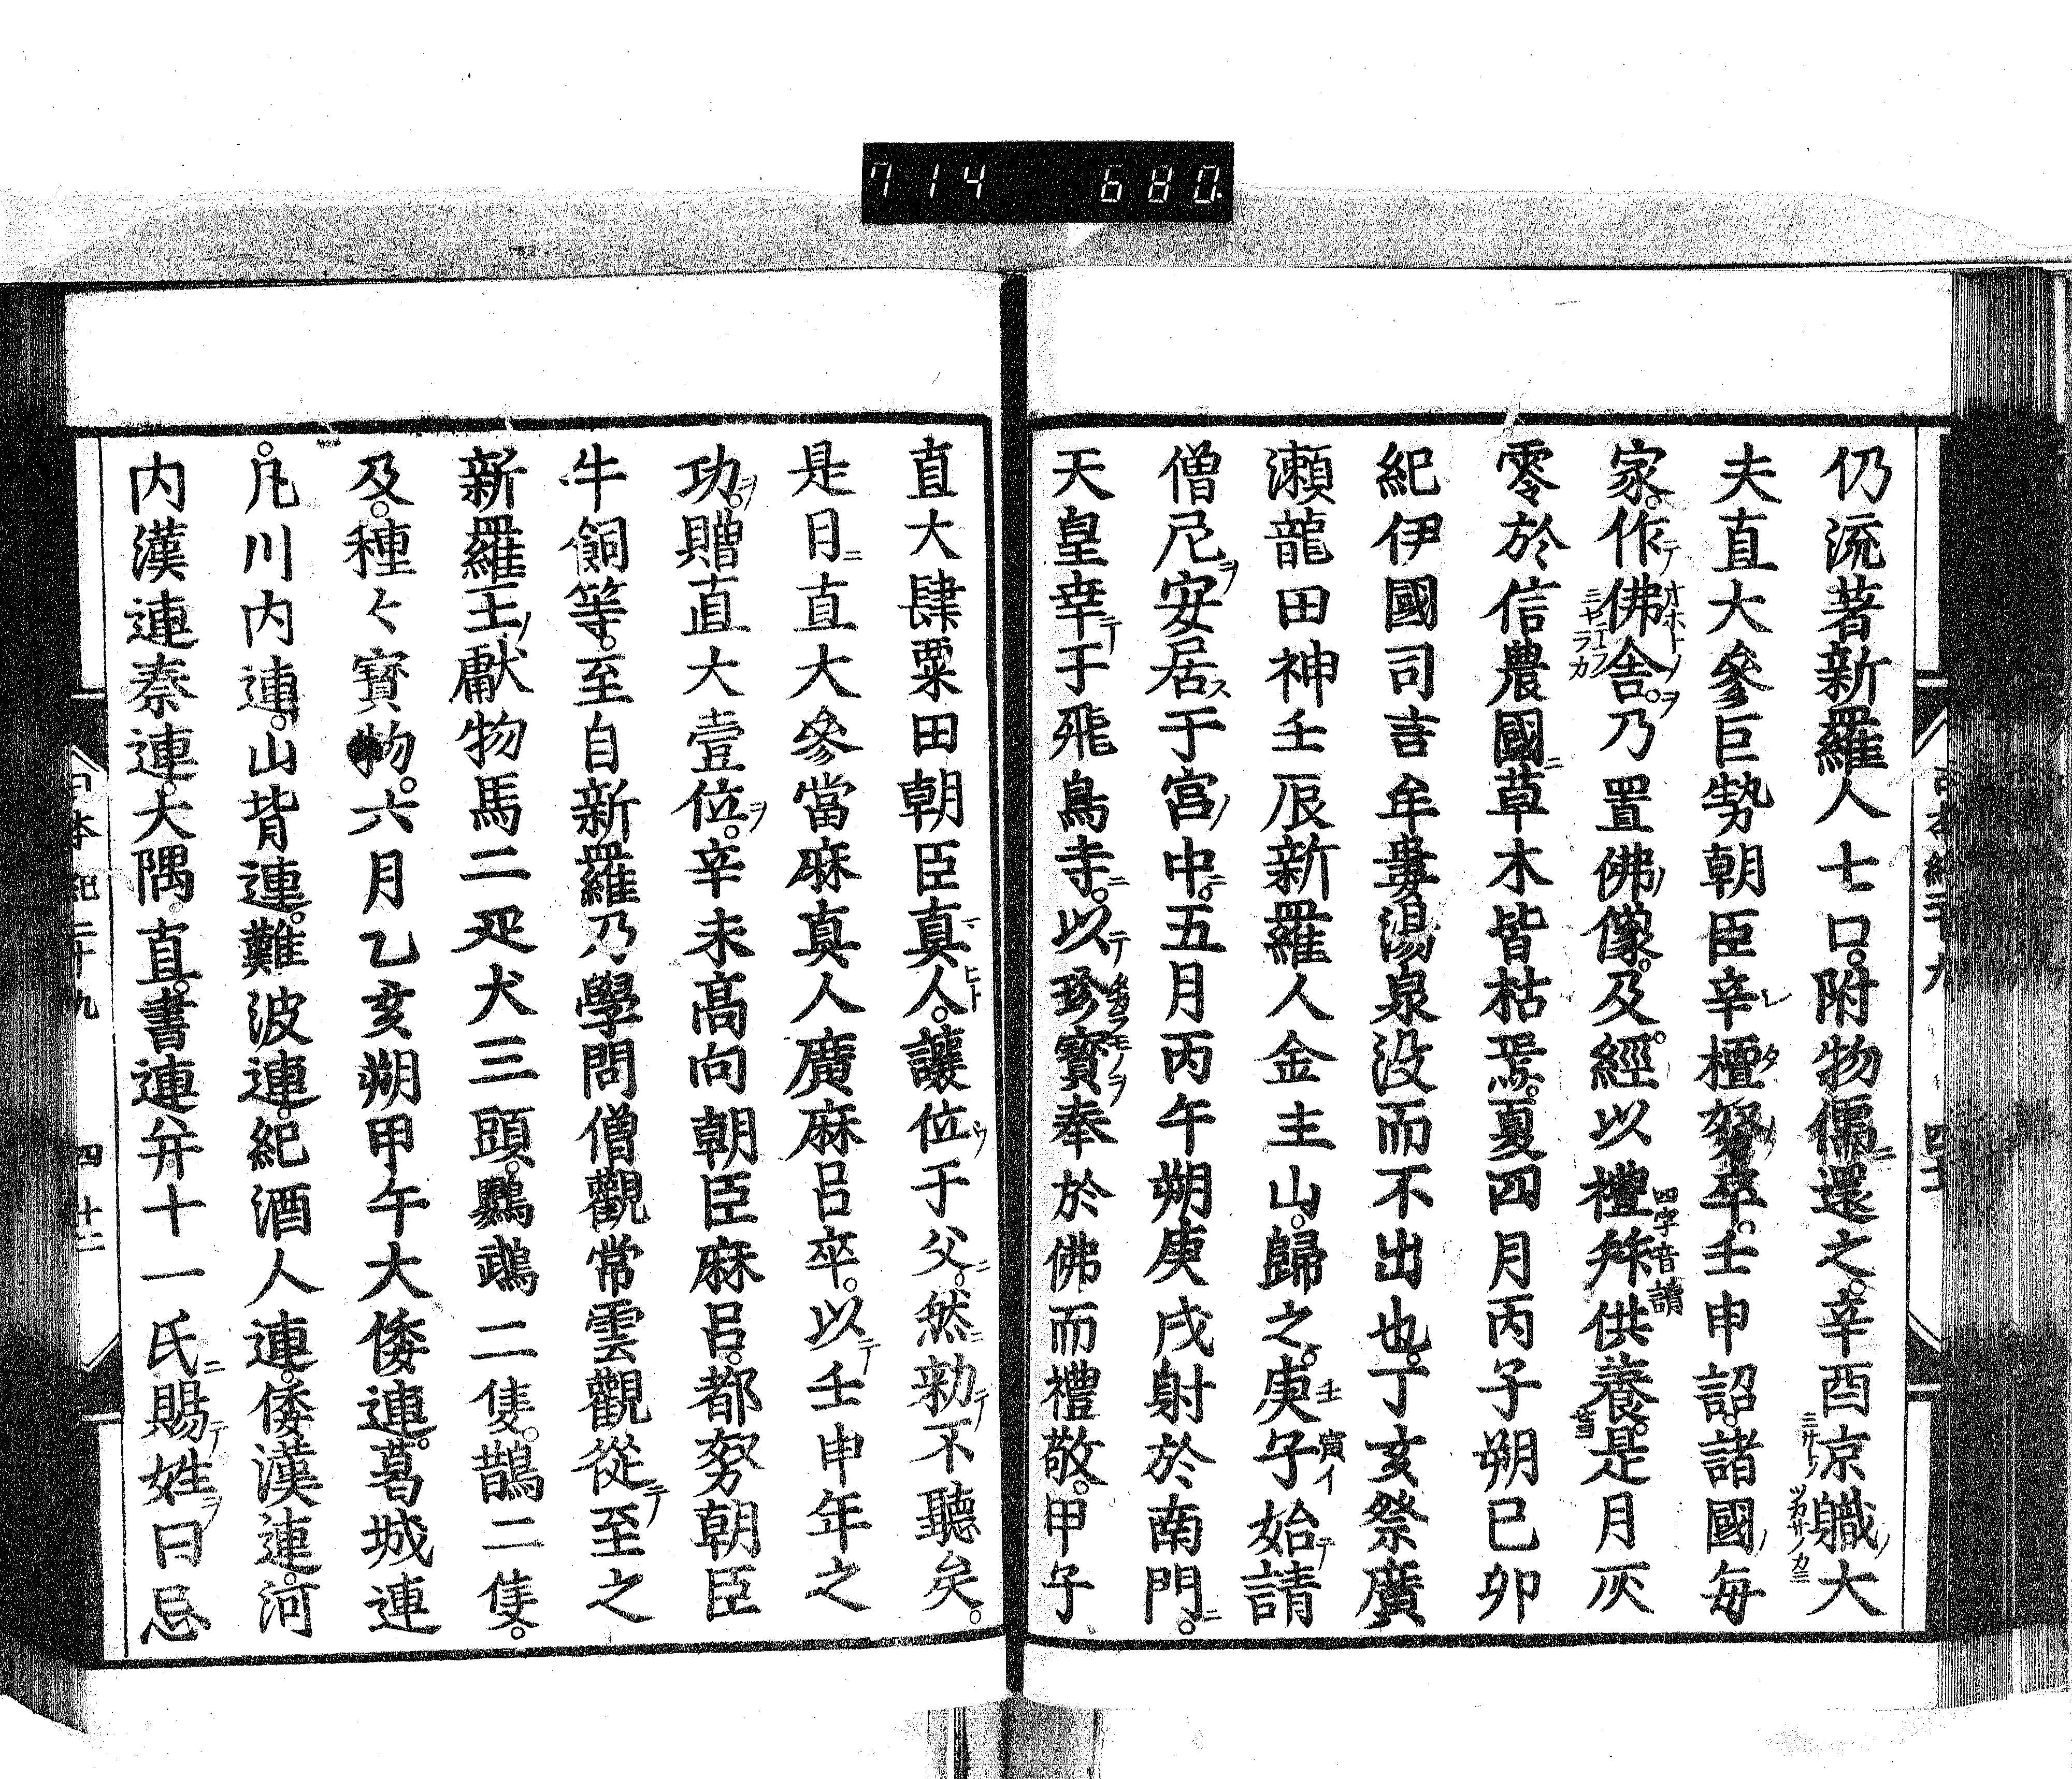 714 680.
仍流著新羅人七口。附物儒還之。辛酉京職大
夫直大參巨勢朝臣辛檀努卒。壬申詔。諸國每
家。作佛舍。乃置佛像。及。經以禮拜供養。是月灰
零於信農國草木皆枯焉。夏四月丙子朔巳卯
紀伊國司言牟婁湯泉没而不出也。丁亥祭廣
瀬龍田神壬辰新羅人金主山。歸之。庚子始請
僧尼安居于宮中。五月丙午朔庚戌射於南門。
天皇幸于飛鳥寺。以珍寶奉於佛而禮敬。甲子
直大肆粟田朝臣真人。讓位于父。然勅不聽矣。
是日直大參當麻真人廣麻呂卒。以壬申年之
功。贈直大壹位。辛未高向朝臣麻呂。都努朝臣
牛飼等。至自新羅乃學問僧觀常雲觀從至之
新羅王獻物馬二疋犬三頭。鸚鵡二隻。鵲二隻。
及。種々寶物。六月乙亥朔甲午大倭連。葛城連
。凡川内連。山背連。難波連。紀酒人連。倭漢連。河
内漢連秦連。大隅直。書連并十一氏賜姓曰忌
日本紀二十九 四十二